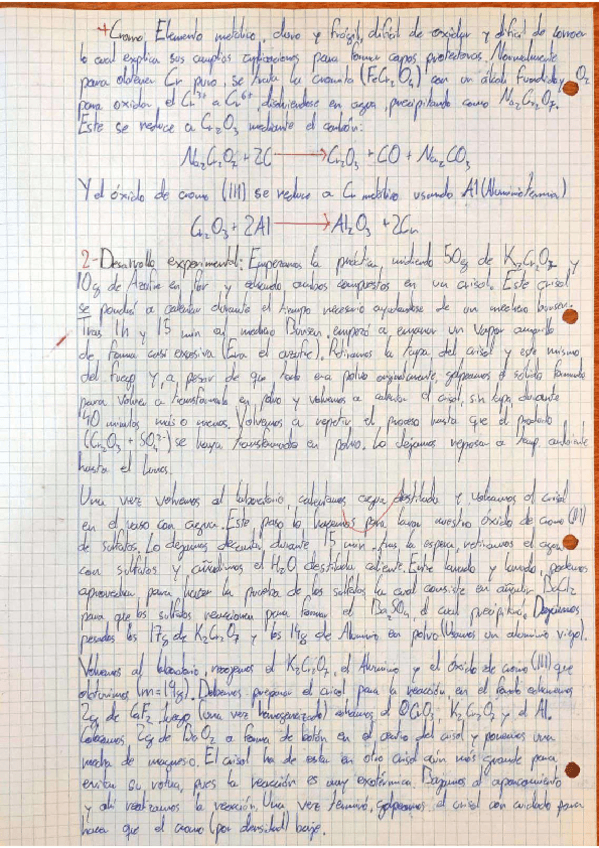 Cromo Elemento metálico, duro y frágil, difícil de oxidar y difícil de corroer
lo cual explica sus amplias aplicaciones para formar capas protectoras. Normalmente
para obtener Cr puro, se trata la cromita (FeCr2O4) con un álcali fundido y O2
para oxidar el Cr3+ a Cr6+, disolviéndose en agua, precipitando como Na2Cr2O7.
Este se reduce a Cr2O3 mediante el carbón:
Na2Cr2O7 + 2C → Cr2O3 + CO + Na2CO3
Y el óxido de cromo (III) se reduce a Cr metálico usando Al (Aluminotermia)
Cr2O3 + 2Al → Al2O3 + 2Cr
2- Desarrollo experimental: Empezamos la práctica midiendo 50g de K2Cr2O7 y
10g de Azufre en flor y echando ambos compuestos en un crisol. Este crisol
se pondrá a calentar durante el tiempo necesario ayudándose de un mechero bunsen.
Tras 1h y 15 min al mechero Bunsen empezó a emanar un vapor amarillo
de forma casi explosiva (Era el azufre). Retiramos la tapa del crisol y este mismo
del fuego y, a pesar de que todo era polvo originalmente, golpeamos el sólido formado
para volver a transformarlo en polvo y volvemos a calentar el crisol, sin tapa, durante
40 minutos más o menos. Volvemos a repetir el proceso hasta que el producto
(Cr2O3 + SO4 2-) se haya transformado en polvo. Lo dejamos reposar a temp. ambiente
hasta el lunes.
Una vez volvemos al laboratorio, calentamos agua destilada y volcamos el crisol
en el vaso con agua. Este paso lo hacemos para lavar nuestro óxido de cromo (III)
de sulfatos. Lo dejamos decantar durante 15 min. tras la espera, retiramos el agua
con sulfatos y añadimos el H2O destilada caliente. Entre lavado y lavado, podemos
aprovechar para hacer la prueba de los sulfatos la cual consiste en añadir BaCl2
para que los sulfatos reaccionen para formar el BaSO4, el cual precipita. Dejamos
pesados los 17g de K2Cr2O7 y los 14g de Aluminio en polvo (Usamos un aluminio viejo).
Volvemos al laboratorio, recogemos el K2Cr2O7, el Aluminio y el óxido de cromo (III) que
obtuvimos (m=19g). Debemos preparar el crisol para la reacción en el fondo echaremos
2g de CaF2. Luego (una vez homogeneizado) echamos el Cr2O3, K2Cr2O7 y el Al.
Colocamos 2g de BaO2 a forma de botón en el centro del crisol y ponemos una
mecha de magnesio. El crisol ha de estar en otro crisol aún más grande para
evitar su pues la reacción es muy exotérmica. Bajamos al aparcamiento
y ahí realizamos la reacción. Una vez terminó, golpeamos el crisol con cuidado para
hacer que el cromo (por densidad) baje.